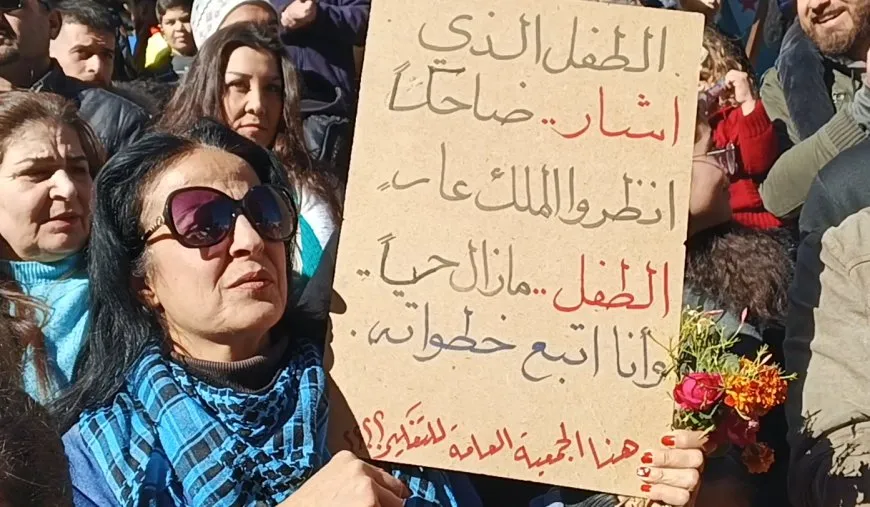 الطفل الذي
اشار.. ضاحكاً
انظروا الملك عارٍ
الطفل.. مازال حياً
وأنا اتبع خطواته
هنا الجمعية العامة للتفكير؟؟؟